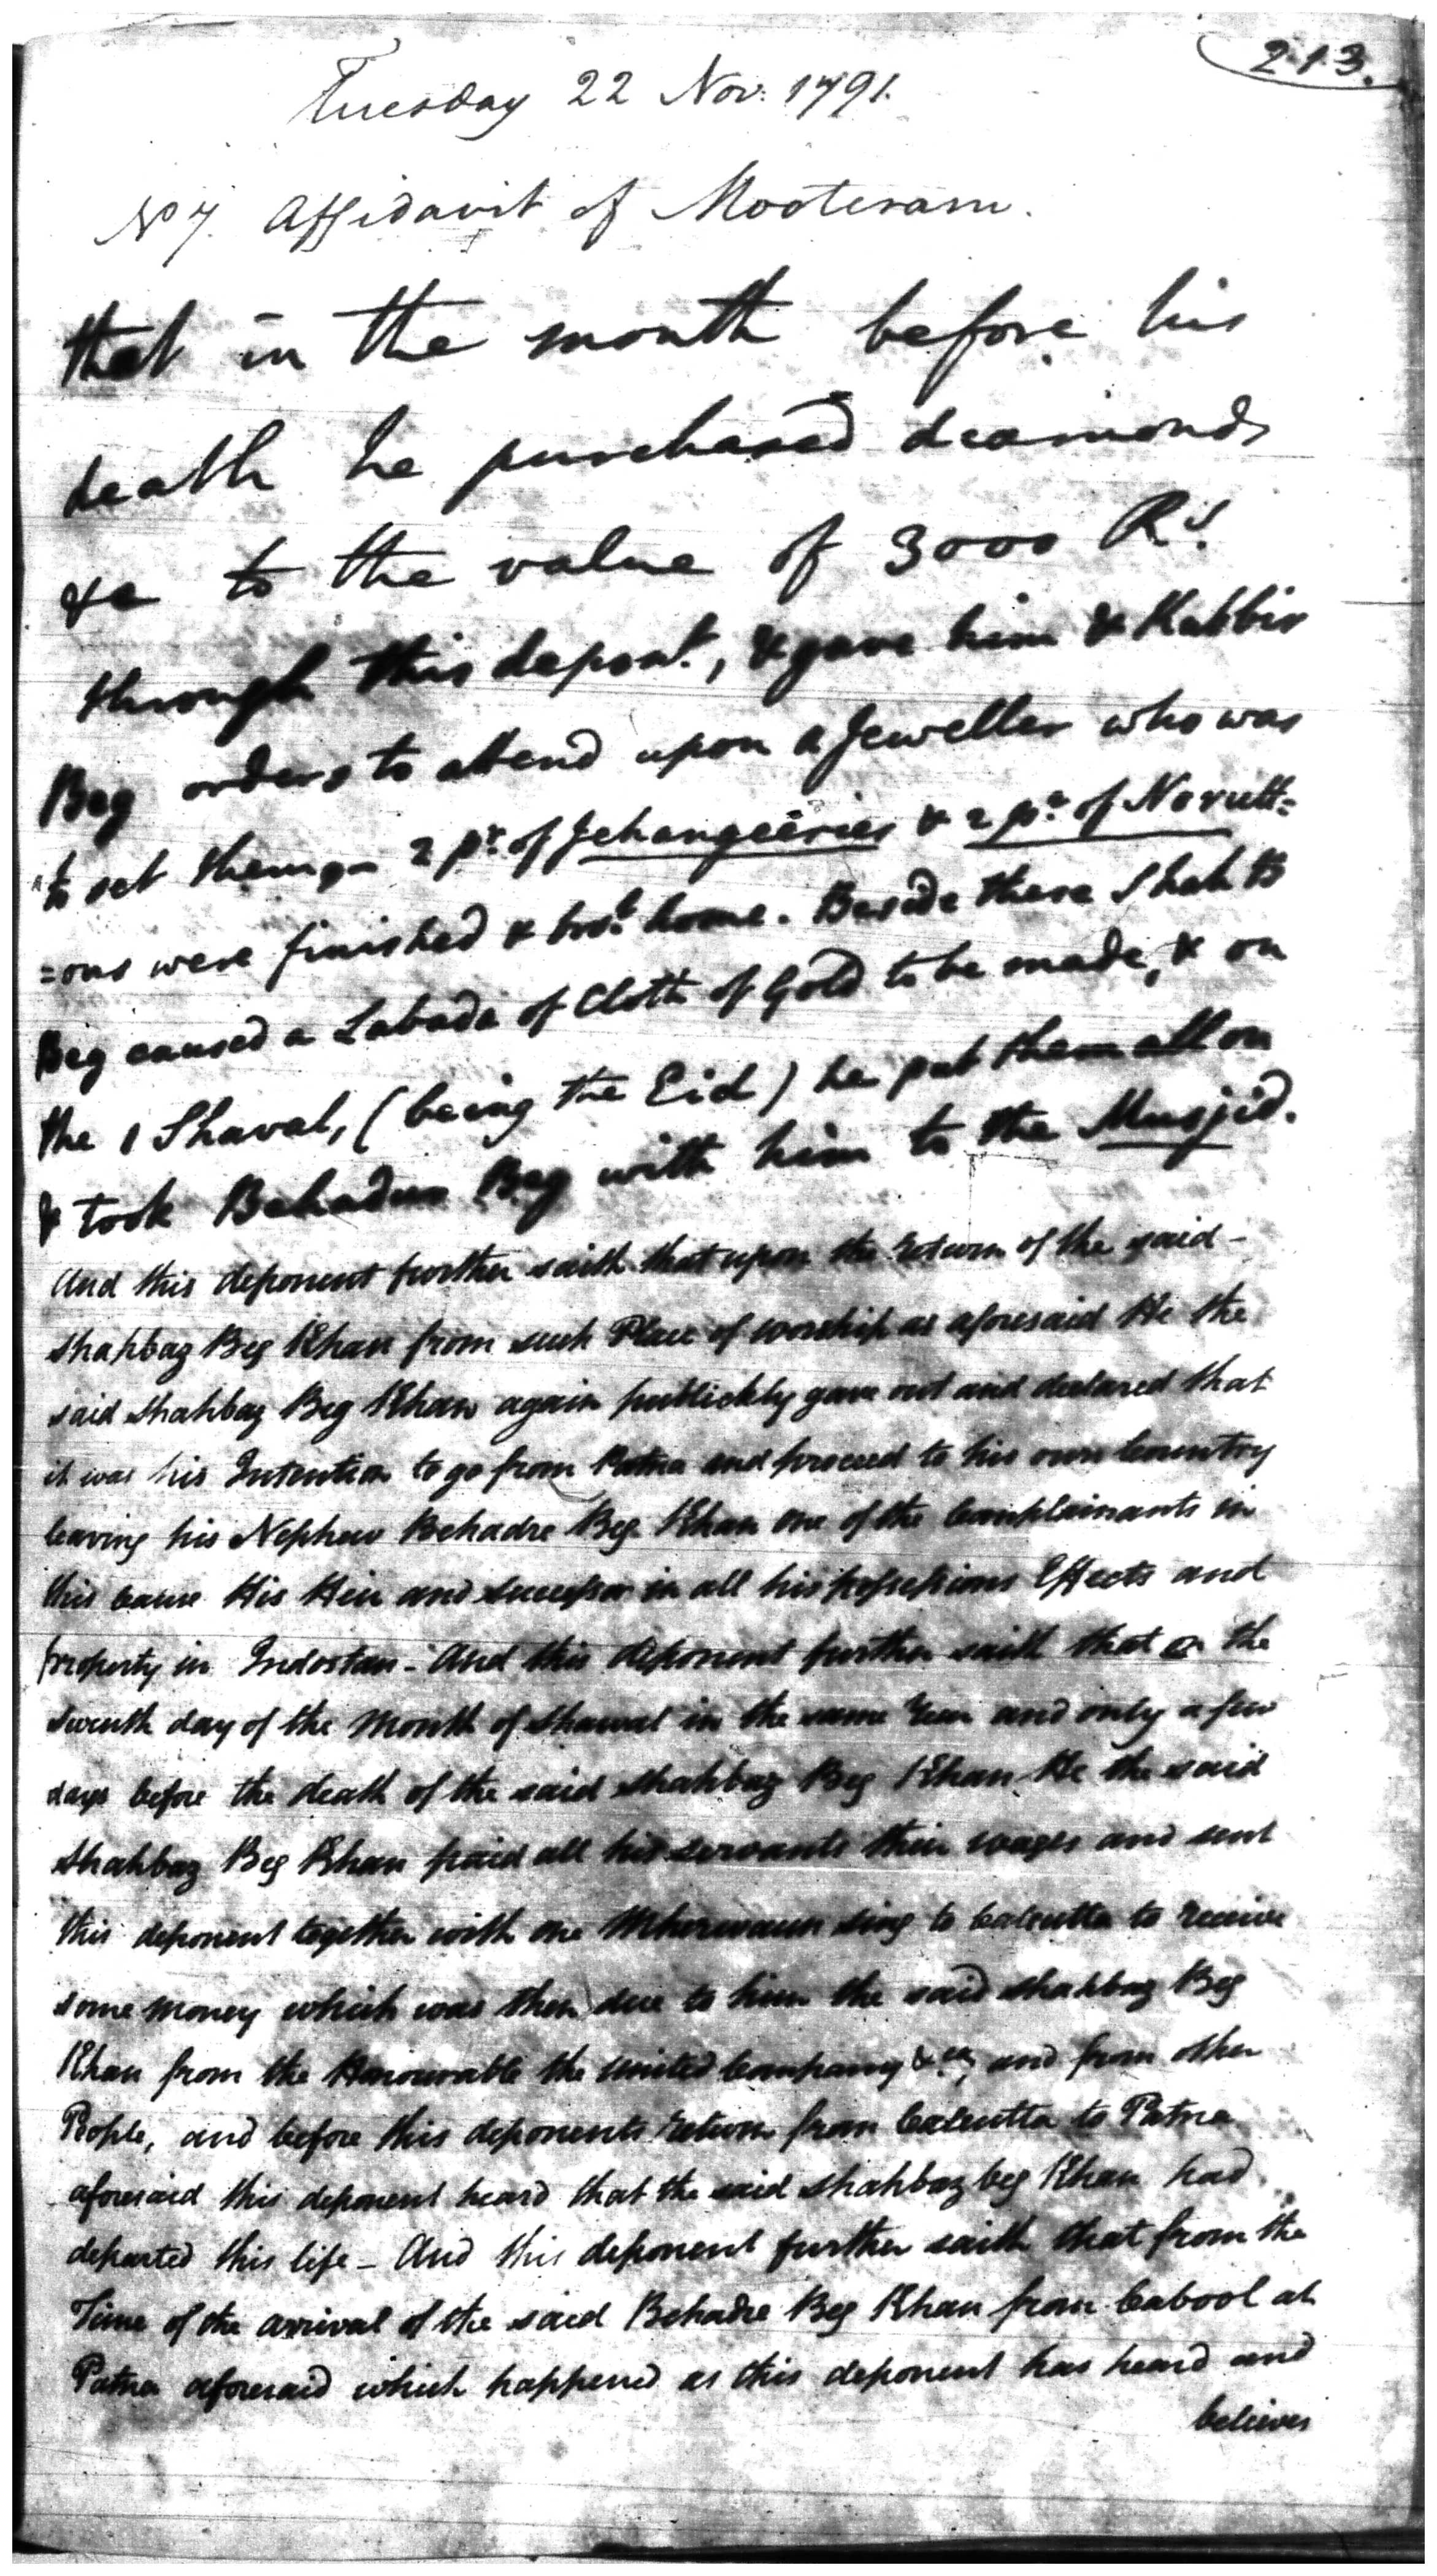 213.
Tuesday 22 Nov: 1791.
No 7. Affidavit of Mooteram.
that in the month before his
death he purchased diamonds
&c to the value of 3000 Rs.
through this depont., & gave him & Kabbir
Beg orders to attend upon a Jeweller who was
to set them 2 pr. of Jehangeeries & 2 pr. of Norutt=
=ons were finished & brot. home. Beside these Shah B
Beg caused a Labada of Cloth of Gold to be made, & on
the 1 Shaval, (being the Eid) he put them all on
& took Behadur Beg with him to the Musjid.
And this deponent further saith that upon the return of the said -
Shahbaz Beg Khan from such Place of worship as aforesaid He the
said Shahbaz Beg Khan again publickly gave out and declared that
it was his Intention to go from Patna and proceed to his own Country
leaving his Nephew Behadre Beg Khan one of the Complainants in
this Cause His Heir and successor in all his possessions Effects and
property in Indostan - And this deponent further saith that on the
seventh day of the Month of Shawal in the same Year and only a few
days before the death of the said Shahbaz Beg Khan He the said
Shahbaz Beg Khan paid all his servants their wages and sent
this deponent together with one Meherwaun Sing to Calcutta to receive
some money which was then due to him the said Shahbaz Beg
Khan from the Honourable the United Company &ca, and from other
People, and before this deponents return from Calcutta to Patna
aforesaid this deponent heard that the said Shahbaz beg Khan had
departed this life - And this deponent further saith that from the
Time of the arrival of the said Behadre Beg Khan from Cabool at
Patna aforesaid which happened as this deponent has heard and
believes